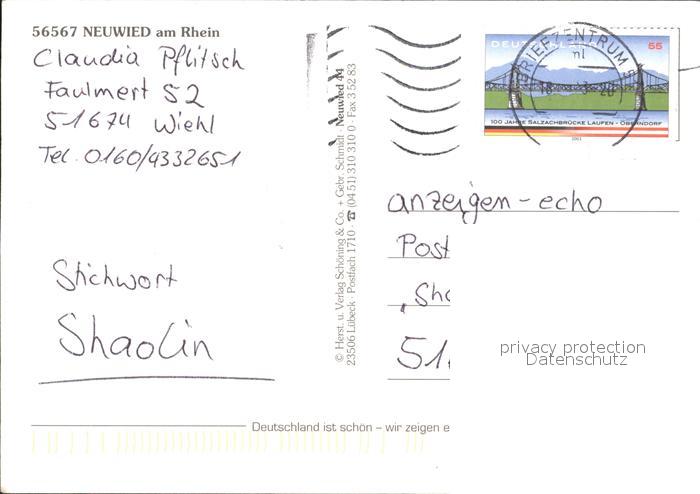 56567 NEUWIED am Rhein
Claudia Pflitsch
Faulmert 52
51674 Wiehl
Tel. 0160/9332651
Stichwort
Shaolin
© Herst. u. Verlag Schöning & Co. + Gebr. Schmidt · Neuwied 44
23506 Lübeck · Postfach 1710 · ☎ (04 51) 310 310 0 · Fax 3 52 83
DEUTSCHLAND 55
BRIEFZENTRUM
nl
100 JAHRE SALZACHBRÜCKE LAUFEN - OBERNDORF
anzeigen-echo
Post
„Sho
51.
privacy protection
Datenschutz
Deutschland ist schön – wir zeigen e